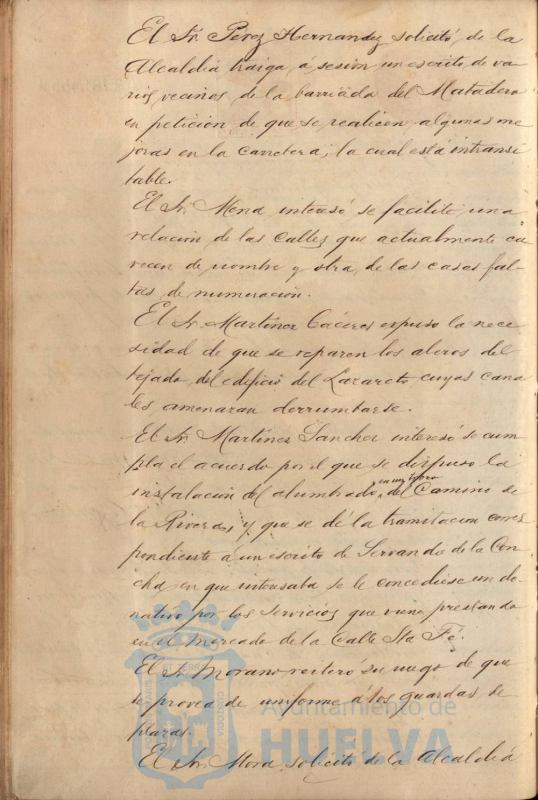 El Sr. Perez Hernandez solicitó de la
Alcaldia traiga á sesión un escrito de va
rios vecinos de la barriada del Matadero
en petición de que se realicen algunas me
joras en la carretera, la cual está intransi
table.
El Sr. Mena interesó se facilite una
relación de las calles que actualmente ca
recen de nombre y otra de las casas fal-
tas de numeración.
El Sr. Martinez Cáceres expuso la nece
sidad de que se reparen los aleros del
tejado del edificio del Lazareto cuyas cana
les amenazan derrumbarse.
El Sr. Martinez Sanchez interesó se cum
pla el acuerdo por el que se dispuso la
instalación del alumbrado del Camino de
la Rivera, y que se dé la tramitacion corres
pondiente a un escrito de Servando de la Con
cha en que interesaba se le concediese un do-
nativo por los servicios que viene prestando
en el mercado de la Calle Sta Fé.
El Sr. Morano reiteró su ruego de que
se provea de uniforme a los guardas de
plazas.
El Sr. Mora solicitó de la Alcaldiá
Ayuntamiento de
HUELVA